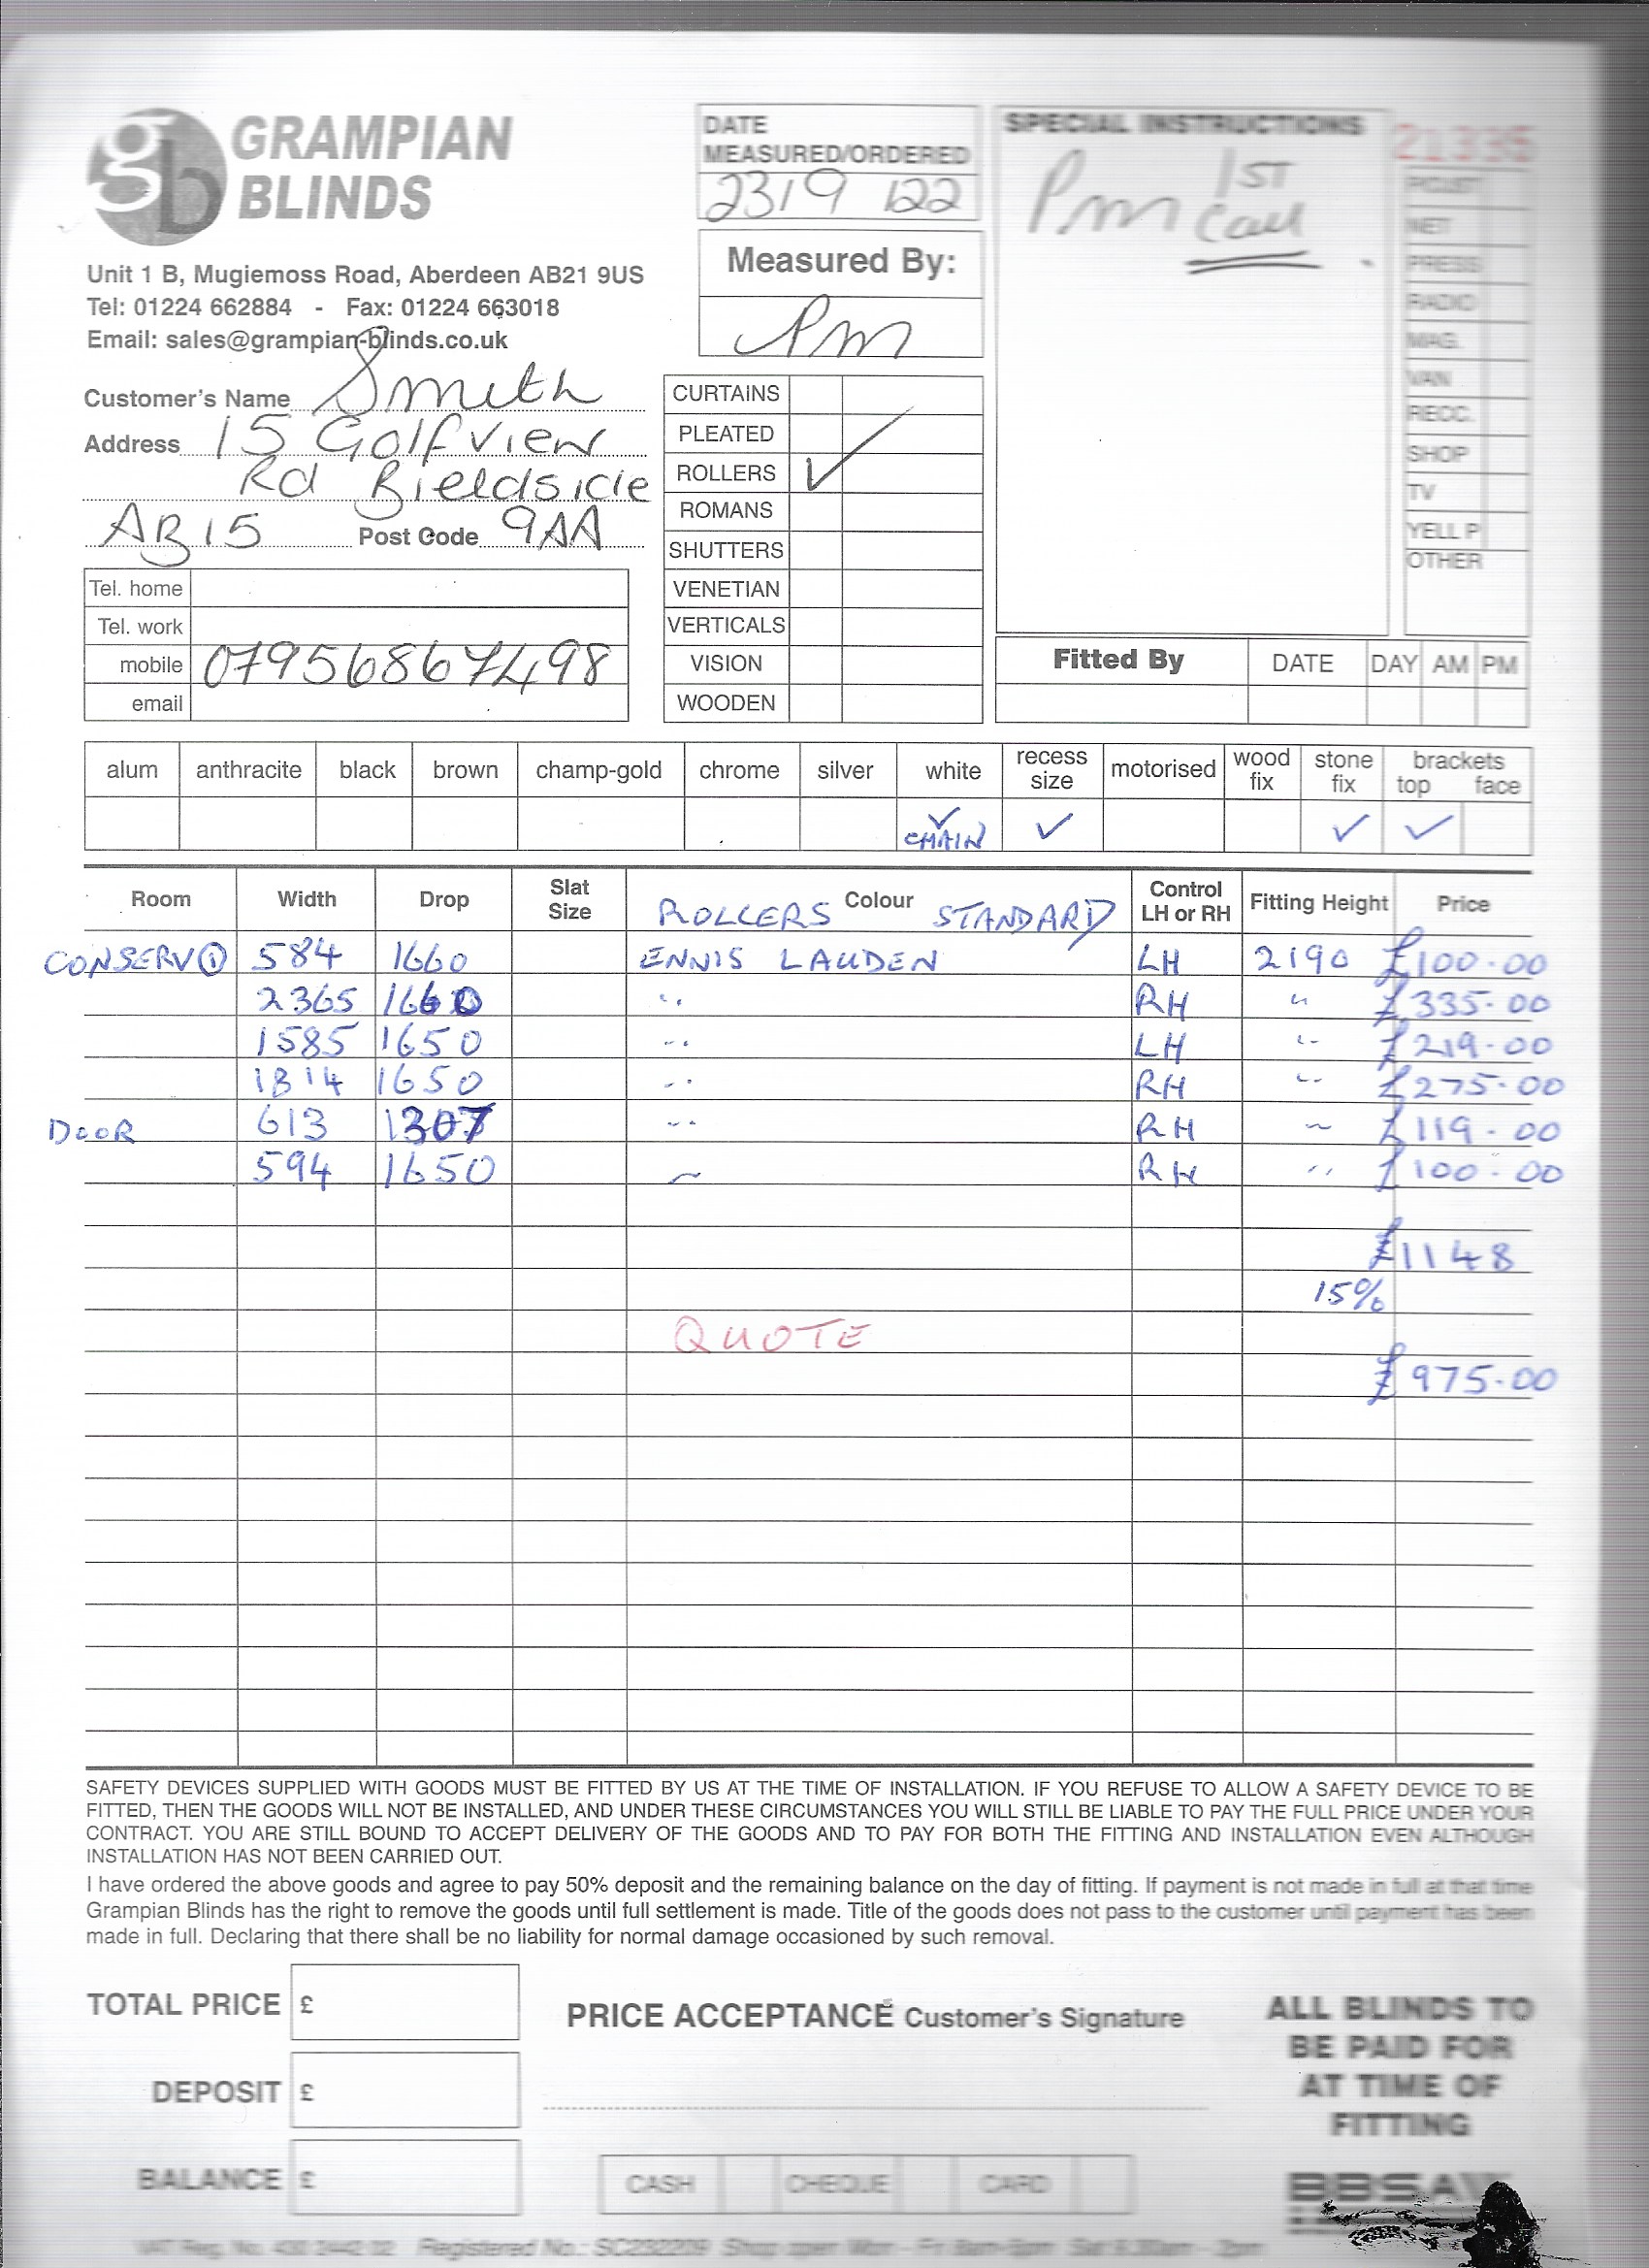 GRAMPIAN
BLINDS
Unit 1 B, Mugiemoss Road, Aberdeen AB21 9US
Tel: 01224 662884 - Fax: 01224 663018
Email: sales@grampian-blinds.co.uk
DATE
MEASURED/ORDERED
23/9/22
Measured By:
Pm
SPECIAL INSTRUCTIONS
Pm 1ST
Call
21335
NET
PRESS
RADIO
MAG.
VAN
RECC.
SHOP
TV
YELL P
OTHER
Customer's Name Smith
Address 15 Golfview
Rd Bieldside
AB15 Post Code 9AA
Tel. home
Tel. work
mobile 07956867498
email
CURTAINS
PLEATED
ROLLERS ✓
ROMANS
SHUTTERS
VENETIAN
VERTICALS
VISION
WOODEN
Fitted By DATE DAY AM PM
alum anthracite black brown champ-gold chrome silver white recess size motorised wood fix stone fix brackets top face
✓ CHAIN ✓ ✓ ✓
Room Width Drop Slat Size Colour Control LH or RH Fitting Height Price
ROLLERS STANDARD
CONSERV ① 584 1660 ENNIS LAUDEN LH 2190 £100.00
2365 1660 " RH " £335.00
1585 1650 " LH " £219.00
1814 1650 " RH " £275.00
DOOR 613 1307 " RH " £119.00
594 1650 " RH " £100.00
£1148
15%
QUOTE
£975.00
SAFETY DEVICES SUPPLIED WITH GOODS MUST BE FITTED BY US AT THE TIME OF INSTALLATION. IF YOU REFUSE TO ALLOW A SAFETY DEVICE TO BE
FITTED, THEN THE GOODS WILL NOT BE INSTALLED, AND UNDER THESE CIRCUMSTANCES YOU WILL STILL BE LIABLE TO PAY THE FULL PRICE UNDER YOUR
CONTRACT. YOU ARE STILL BOUND TO ACCEPT DELIVERY OF THE GOODS AND TO PAY FOR BOTH THE FITTING AND INSTALLATION EVEN ALTHOUGH
INSTALLATION HAS NOT BEEN CARRIED OUT.
I have ordered the above goods and agree to pay 50% deposit and the remaining balance on the day of fitting. If payment is not made in full at that time
Grampian Blinds has the right to remove the goods until full settlement is made. Title of the goods does not pass to the customer until payment has been
made in full. Declaring that there shall be no liability for normal damage occasioned by such removal.
TOTAL PRICE £
DEPOSIT £
BALANCE £
PRICE ACCEPTANCE Customer's Signature
CASH CHEQUE CARD
ALL BLINDS TO
BE PAID FOR
AT TIME OF
FITTING
BBSA
VAT Reg. No. Registered No.: SC232209 Shop open Mon - Fri